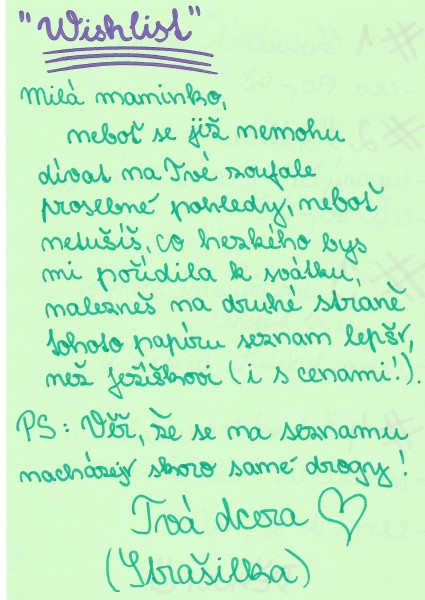 "Wishlist"
Milá maminko,
neboť se již nemohu
dívat na Tvé zoufale
prosebné pohledy, neboť
netušíš, co hezkého bys
mi pořídila k svátku,
nalezneš na druhé straně
tohoto papíru seznam lepší,
než ježíškovi (i s cenami!).
PS: Věř, že se na seznamu
nacházejí skoro samé drogy!
Tvá dcera ♡
(Strašilka)